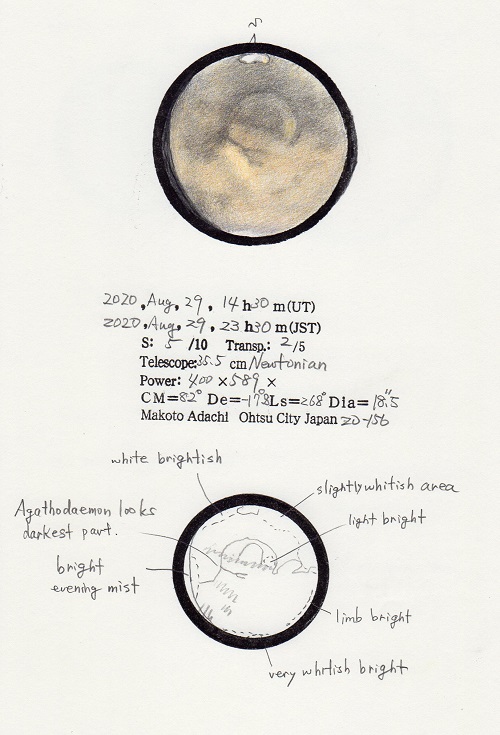 N
2020, Aug, 29, 14 h30 m(UT)
2020, Aug, 29, 23 h30 m(JST)
S: 5 /10 Transp.: 2/5
Telescope:35.5 cm Newtonian
Power: 400 ×589 ×
CM=82° De=-17°.8 Ls=268° Dia=18".5
Makoto Adachi Ohtsu City Japan 20-156
white brightish
slightly whitish area
Agathodaemon looks
darkest part.
light bright
bright
evening mist
limb bright
very whitish bright